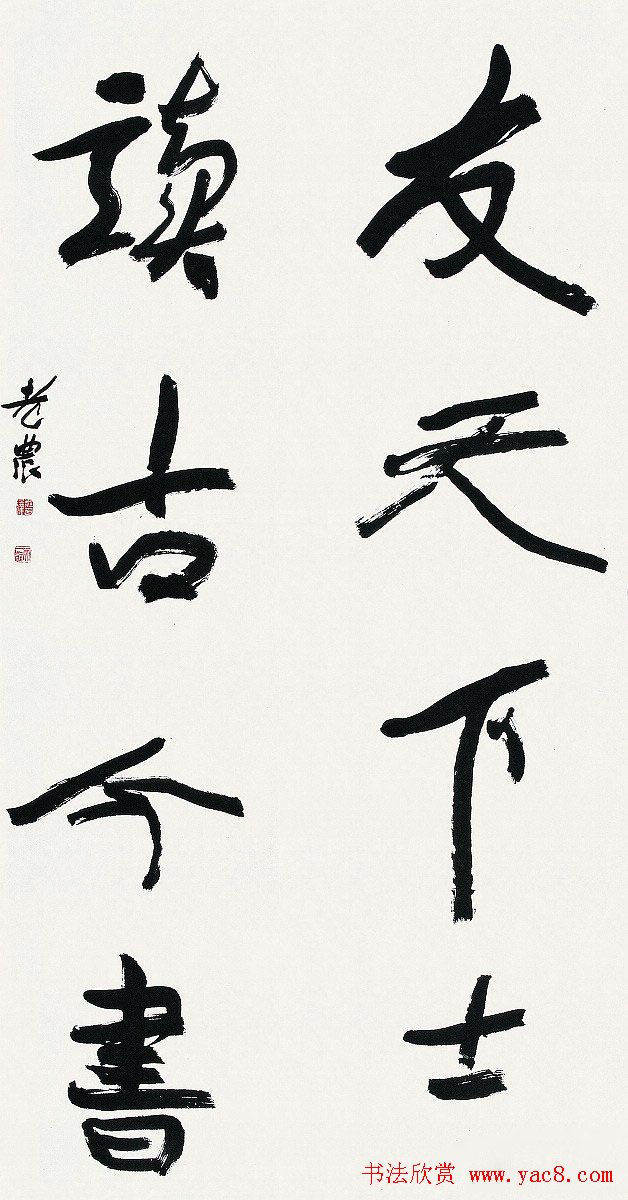 友天下士
讀古今書
老農
书法欣赏 www.yac8.com